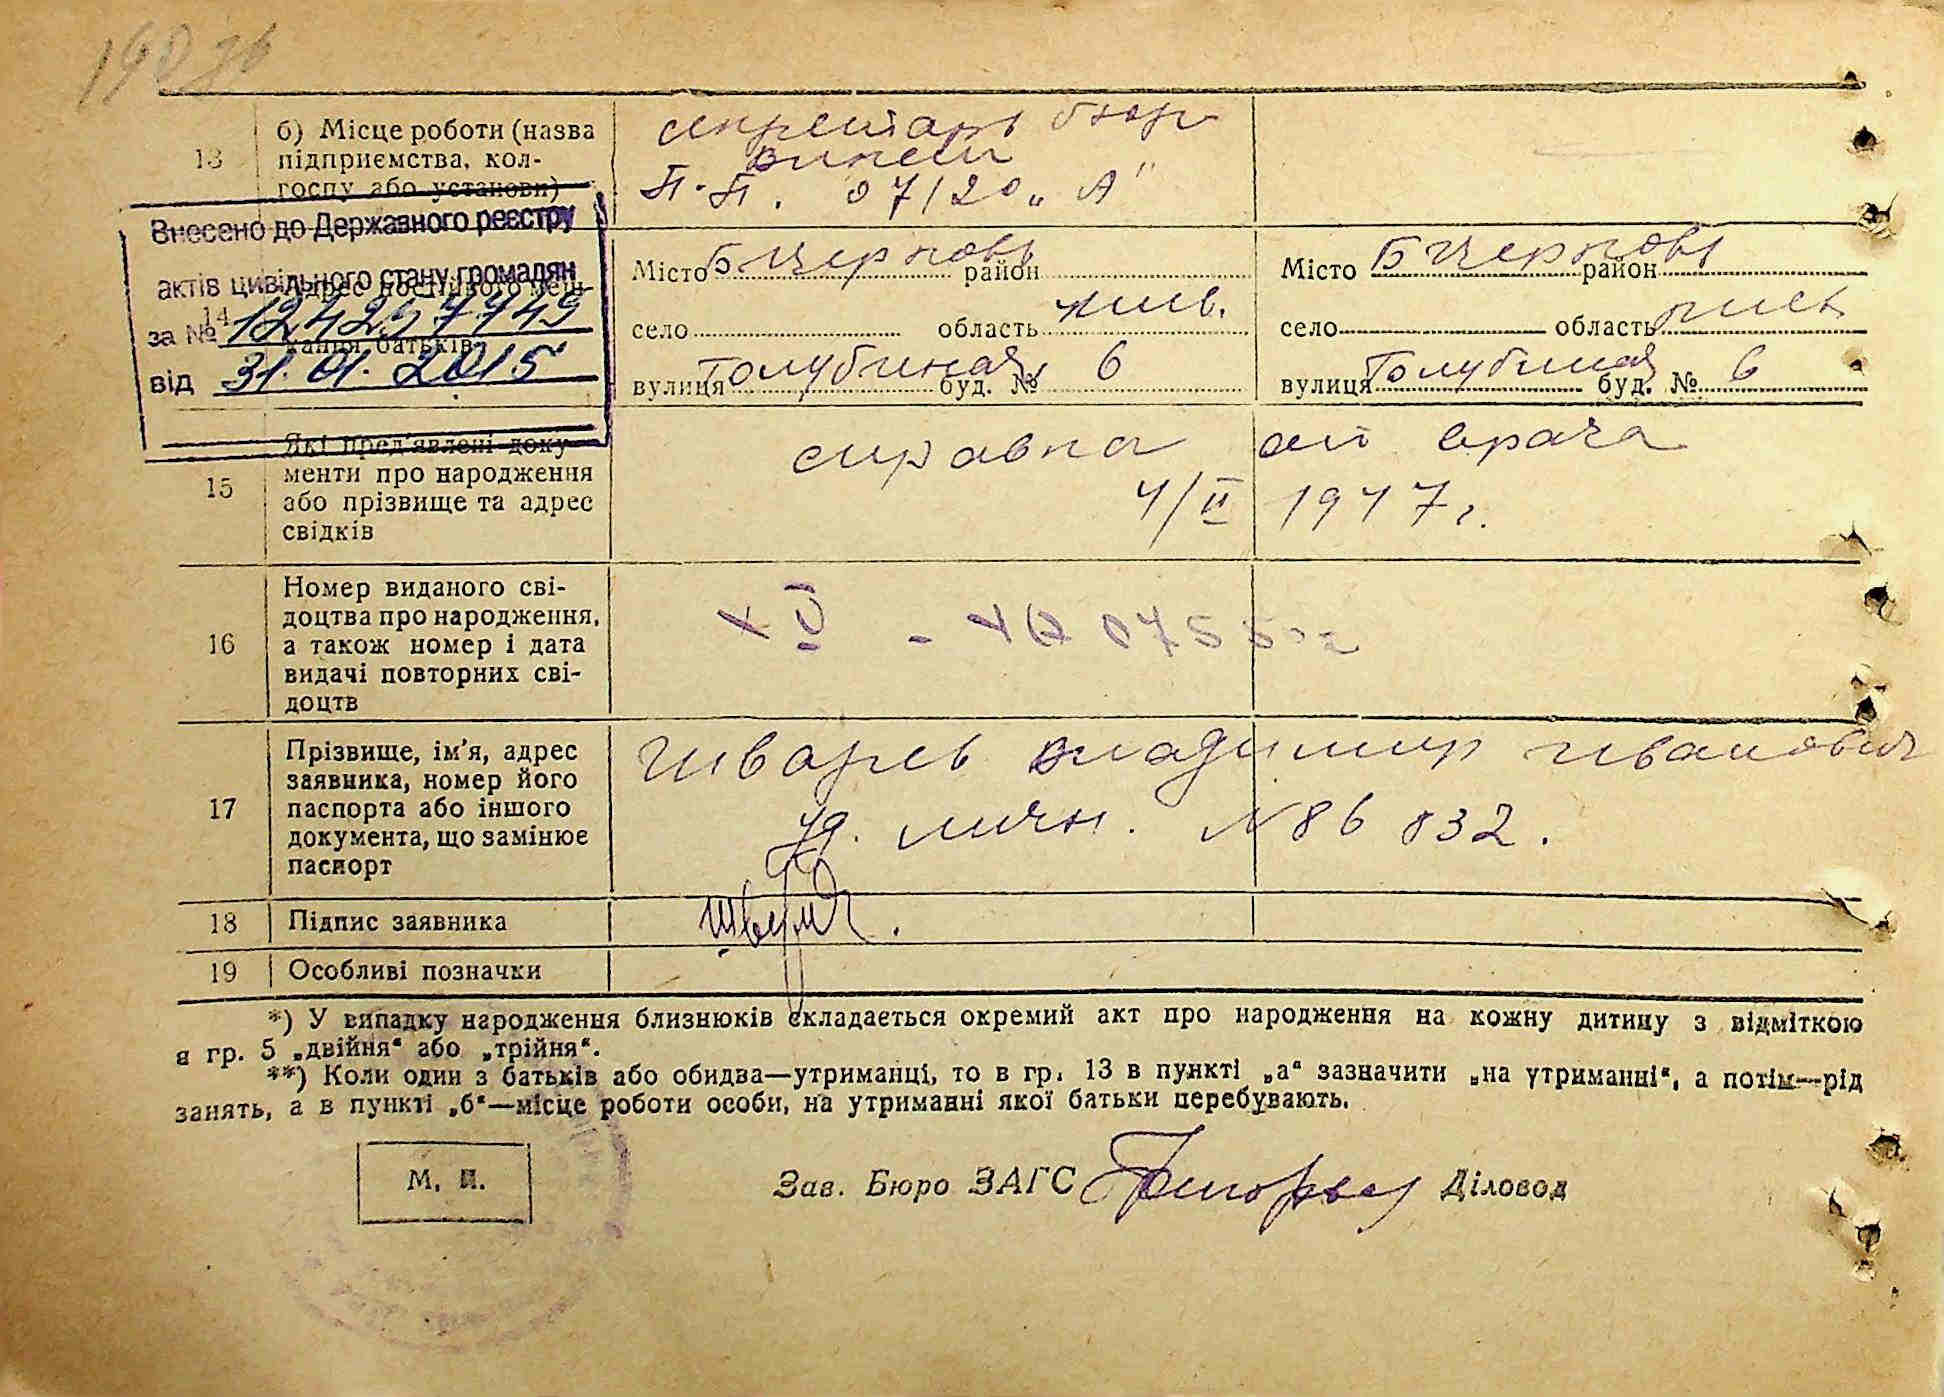 198 зв
13
б) Місце роботи (назва
підприємства, кол-
госпу або установи)
секретарь бюро
П.П. 07120 „А"
Внесено до Державного реєстру
актів цивільного стану громадян
за № 124257749
від 31.01.2015
14
Адрес постійного меш-
кання батьків
Місто Б Церковь район
село область киев.
вулиця Голубиная буд. № 6
Місто Б Церковь район
село область киев
вулиця Голубиная буд. № 6
15
Які пред'явлені доку-
менти про народження
або прізвище та адрес
свідків
справка от врача
4/II 1947 г.
16
Номер виданого сві-
доцтва про народження,
а також номер і дата
видачі повторних сві-
доцтв
17
Прізвище, ім'я, адрес
заявника, номер його
паспорта або іншого
документа, що замінює
паспорт
Владимир Иванович
уд. личн. N 86 832.
18
Підпис заявника
19
Особливі позначки
*) У випадку народження близнюків складається окремий акт про народження на кожну дитину з відміткою
в гр. 5 „двійня“ або „трійня“.
**) Коли один з батьків або обидва—утриманці, то в гр. 13 в пункті „а“ зазначити „на утриманні“, а потім—рід
занять, а в пункті „б“—місце роботи особи, на утриманні якої батьки перебувають.
М. П.
Зав. Бюро ЗАГС
Діловод